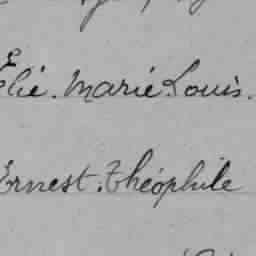 Elie. Marie Louis.
Ernest. Théophile